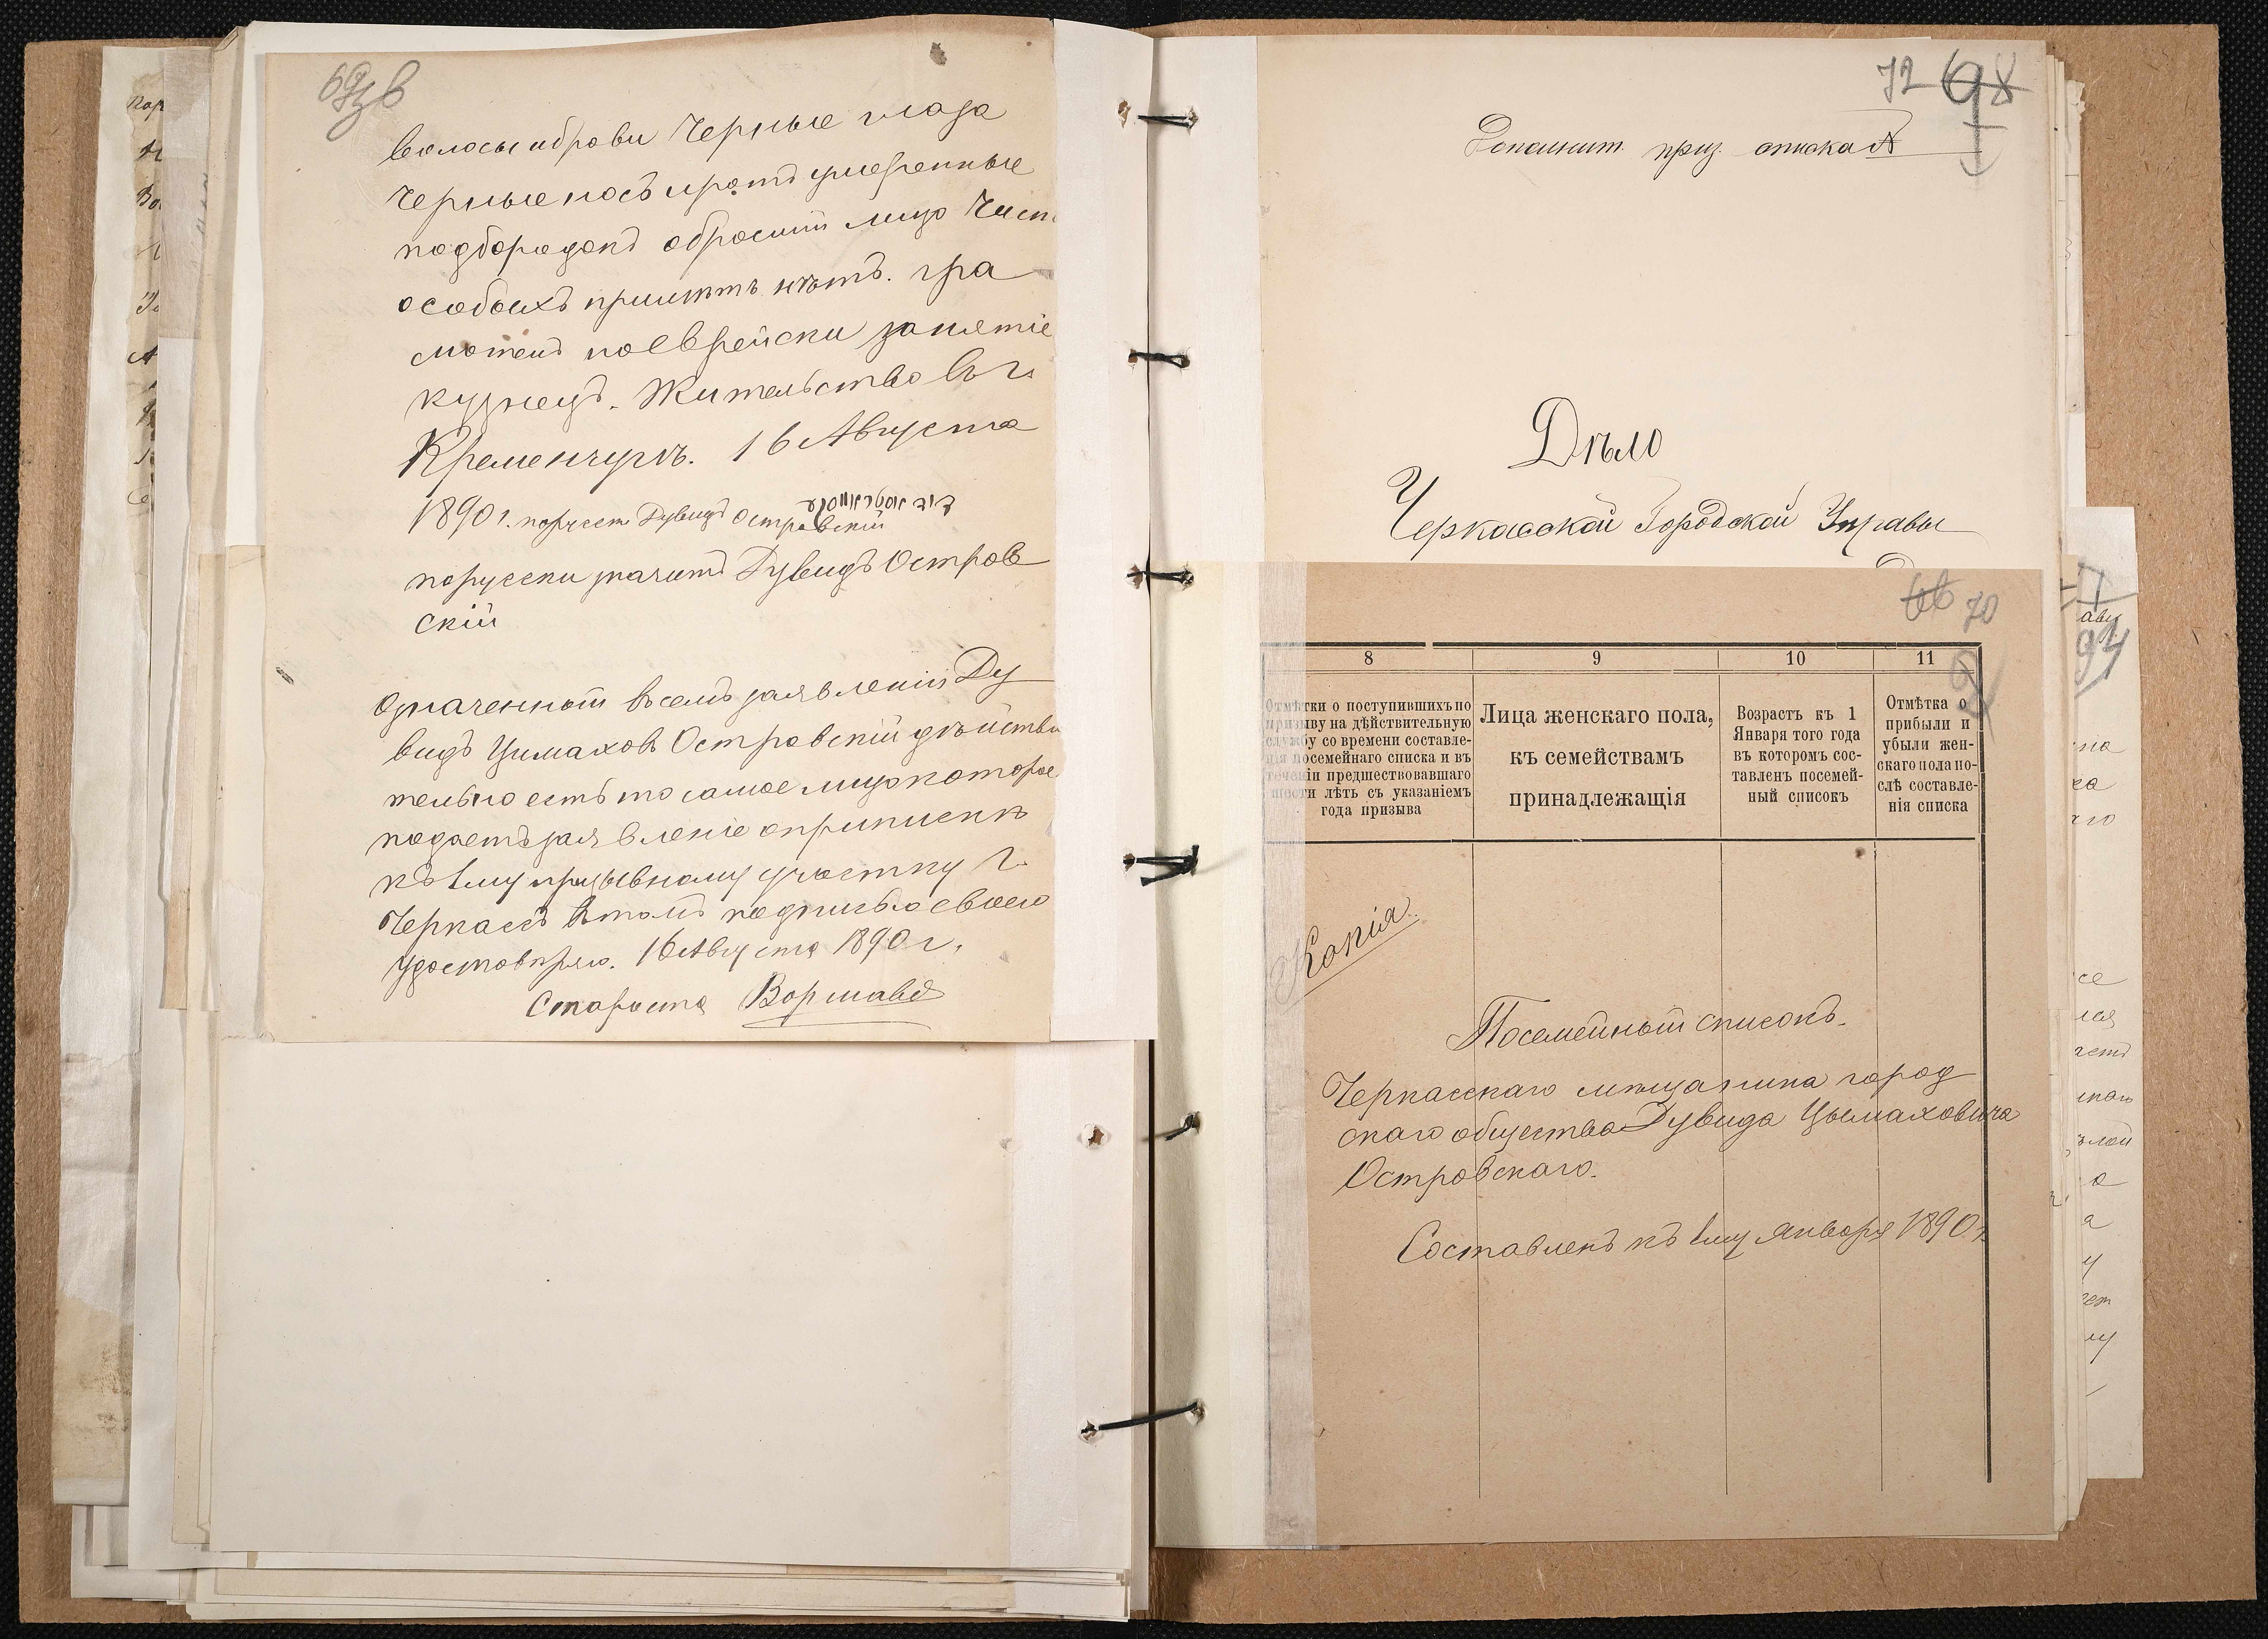 волосы и брови Черные глаза
Черные носъ и ротъ умеренные
подбородокъ обросший лицо Чист
особыхъ приметъ нѣтъ. гра
мотенъ поеврейски занятіе
кузнецъ. Жительство въ г.
Кременчугѣ. 16 Августа
1890 г. Дувидъ Островскій
порусски значитъ Дувидъ Остров
скій
Означенный въ семъ заявленіи Ду
видъ Цимаховъ Островскій дѣйстви
тельно есть то самое лицо которое
подаетъ заявленіе о припискѣ
къ 1му призывному участку г.
Черкассъ въ томъ подписью своею
удостовѣряю. 16 Августа 1890 г.
Староста Варшава
72
приз. списка
Дѣло
Черкасской Городской Управы
66 70
8 9 10 11
Отмѣтки о поступившихъ по
призыву на дѣйствительную
службу со времени составле-
нія посемейнаго списка и въ
теченіи предшествовавшаго
шести лѣтъ съ указаніемъ
года призыва
Лица женскаго пола,
къ семействамъ
принадлежащія
Возрастъ къ 1
Января того года
въ которомъ сос-
тавленъ посемей-
ный списокъ
Отмѣтка о
прибыли и
убыли жен-
скаго пола по-
слѣ составле-
нія списка
Копія.
Посемейный списокъ.
Черкасскаго мѣщанина город
скаго общества Дувида Цымаховича
Островскаго.
Составленъ къ 1му Января 1890 г.